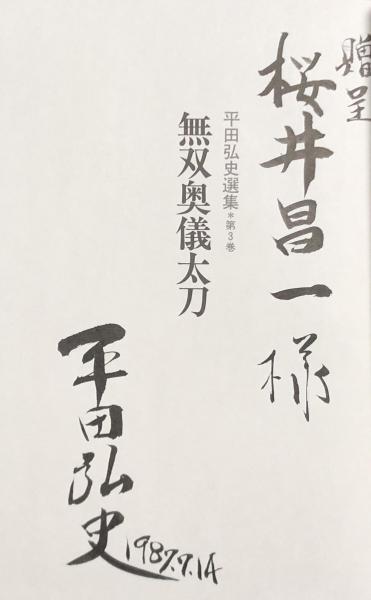 贈呈
桜井昌一様
平田弘史選集*第3巻
無双奥儀太刀
平田弘史
1987.7.14